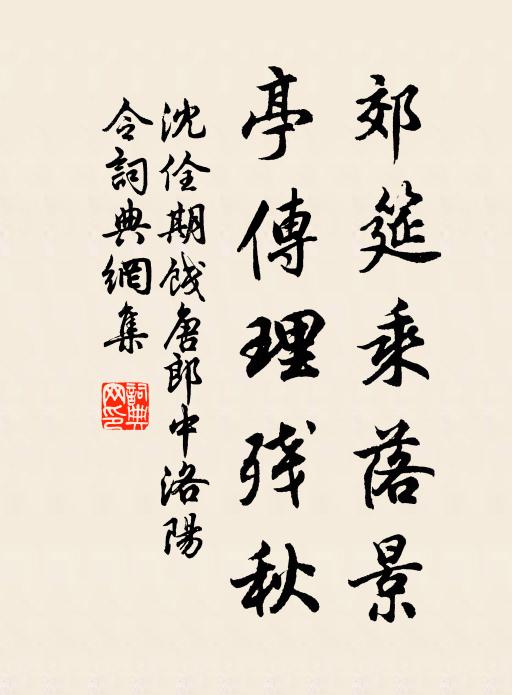 郊筵乘落景
亭傳理残秋
沈佺期餞唐郎中洛陽
令詞典網集
詞典
网印